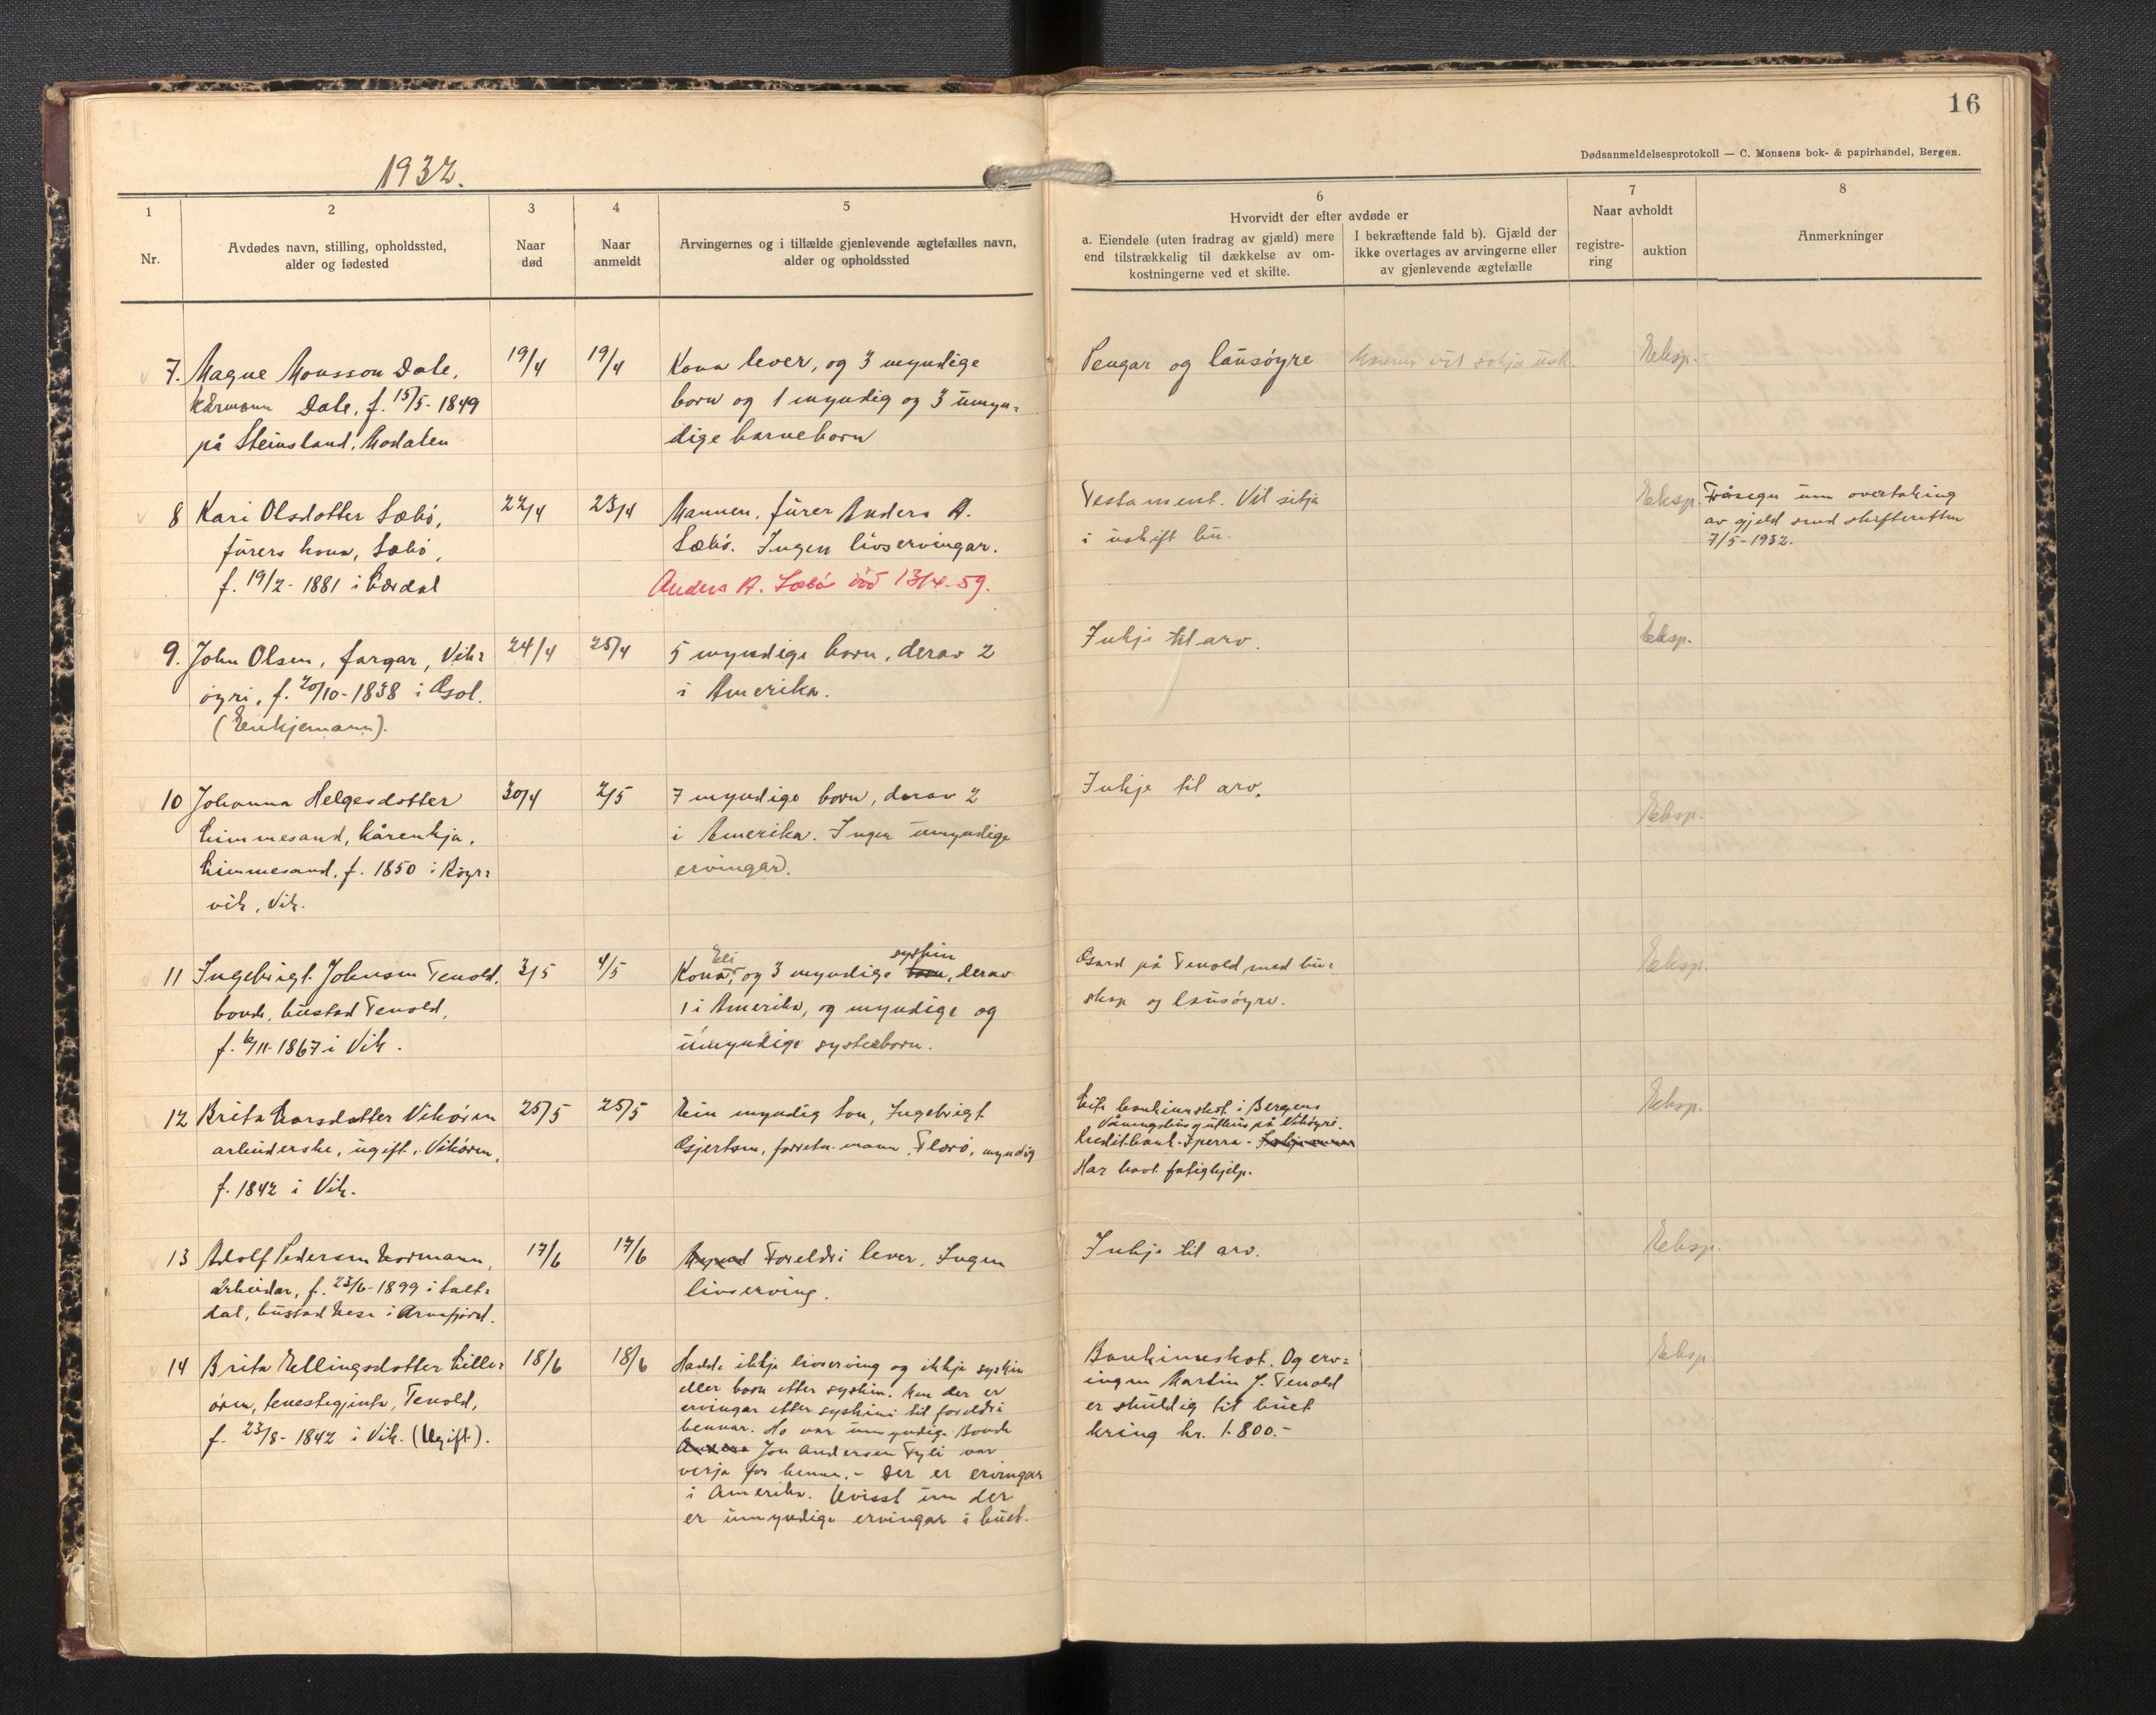 16
Dødsanmeldelsesprotokoll — C. Monsens bok- & papirhandel, Bergen.
1932.
1
2
3
4
5
Nr.
Avdødes navn, stilling, opholdssted,
alder og fødested
Naar
død
Naar
anmeldt
Arvingernes og i tilfælde gjenlevende ægtefælles navn,
alder og opholdssted
6
Hvorvidt der efter avdøde er
a. Eiendele (uten fradrag av gjæld) mere
end tilstrækkelig til dækkelse av om-
kostningerne ved et skifte.
I bekræftende fald b). Gjæld der
ikke overtages av arvingerne eller
av gjenlevende ægtefælle
7
Naar avholdt
registre-
ring
auktion
8
Anmerkninger
7. Magne Monsson Dale,
kårmann Dale, f. 15/5-1849
på Steinsland, Modalen
19/4
19/4
Kona lever, og 3 myndige
born og 1 myndig og 3 ŭmyn-
dige barneborn
Pengar og laŭsøyre
vil sitja
Eksp.
8 Kari Olsdotter Sæbø,
fŭrers kona, Sæbø,
f. 19/2-1881 i Lærdal
22/4
23/4
Mannen, fŭrer Anders A.
Sæbø. Ingen livservingar.
Anders A. Sæbø død 13/4-59.
Testament. Vil sitja
i ŭskift bŭ.
Eksp.
Fråsegn ŭm overtaking
av gjeld send skifteretten
7/5-1932.
9. John Olsen, fargar, Vik-
øyri, f. 20/10-1838 i Gol.
(Enkjemann).
24/4
25/4
5 myndige born, derav 2
i Amerika.
Inkje til arv.
Eksp.
10 Johanna Helgesdotter
Limmesand, kårenkja,
Limmesand, f. 1850 i Røyr-
vik, Vik.
30/4
2/5
7 myndige born, derav 2
i Amerika. Ingen ŭmyndige
ervingar.
Inkje til arv.
Eksp.
11 Ingebrigt Johnsen Tenold,
bonde, bŭstad Tenold,
f. 6/11-1867 i Vik.
3/5
4/5
Eli
syskin
Kona, og 3 myndige born, derav
1 i Amerika, og myndige og
ŭmyndige systerborn.
Gard på Tenold, med bŭ-
skap og laŭsøyre.
Eksp.
12 Brita Larsdotter Vikøren
arbeiderske, ugift, Vikøren,
f. 1842 i Vik.
25/5
25/5
Ein myndig son, Ingebrigt
Gjertsen, forretn.mann, Florø, myndig
Lite bankinnskot i Bergens
Våningshŭs og ŭthŭs på Vikøyri.
Kreditbank - sperra -
Har havt fatighjelp.
Eksp.
13 Adolf Pedersen Normann,
arbeidar, f. 23/6-1899 i Salt-
dal, bŭstad Nese i Arnafjord.
17/6
17/6
Foreldri lever. Ingen
livserving.
Inkje til arv.
Eksp.
14 Brita Ellingsdotter Lille-
øren, tenestegjenta, Tenold,
f. 23/8-1842 i Vik. (Ugift).
18/6
18/6
Hadde ikkje livserving og ikkje syskin
eller born etter syskin. Men der er
ervingar etter syskini til foreldri
hennar. Ho var ŭmyndig. Bonde
Anders Jon Andersen Tyli var
verja for henne. - Der er ervingar
i Amerika. Uvisst ŭm der
er ŭmyndige ervingar i bŭet.
Bankinnskot. Og erv-
ingen Martin J. Tenold
er skŭldig til bŭet
kring kr. 1.800.-
Eksp.